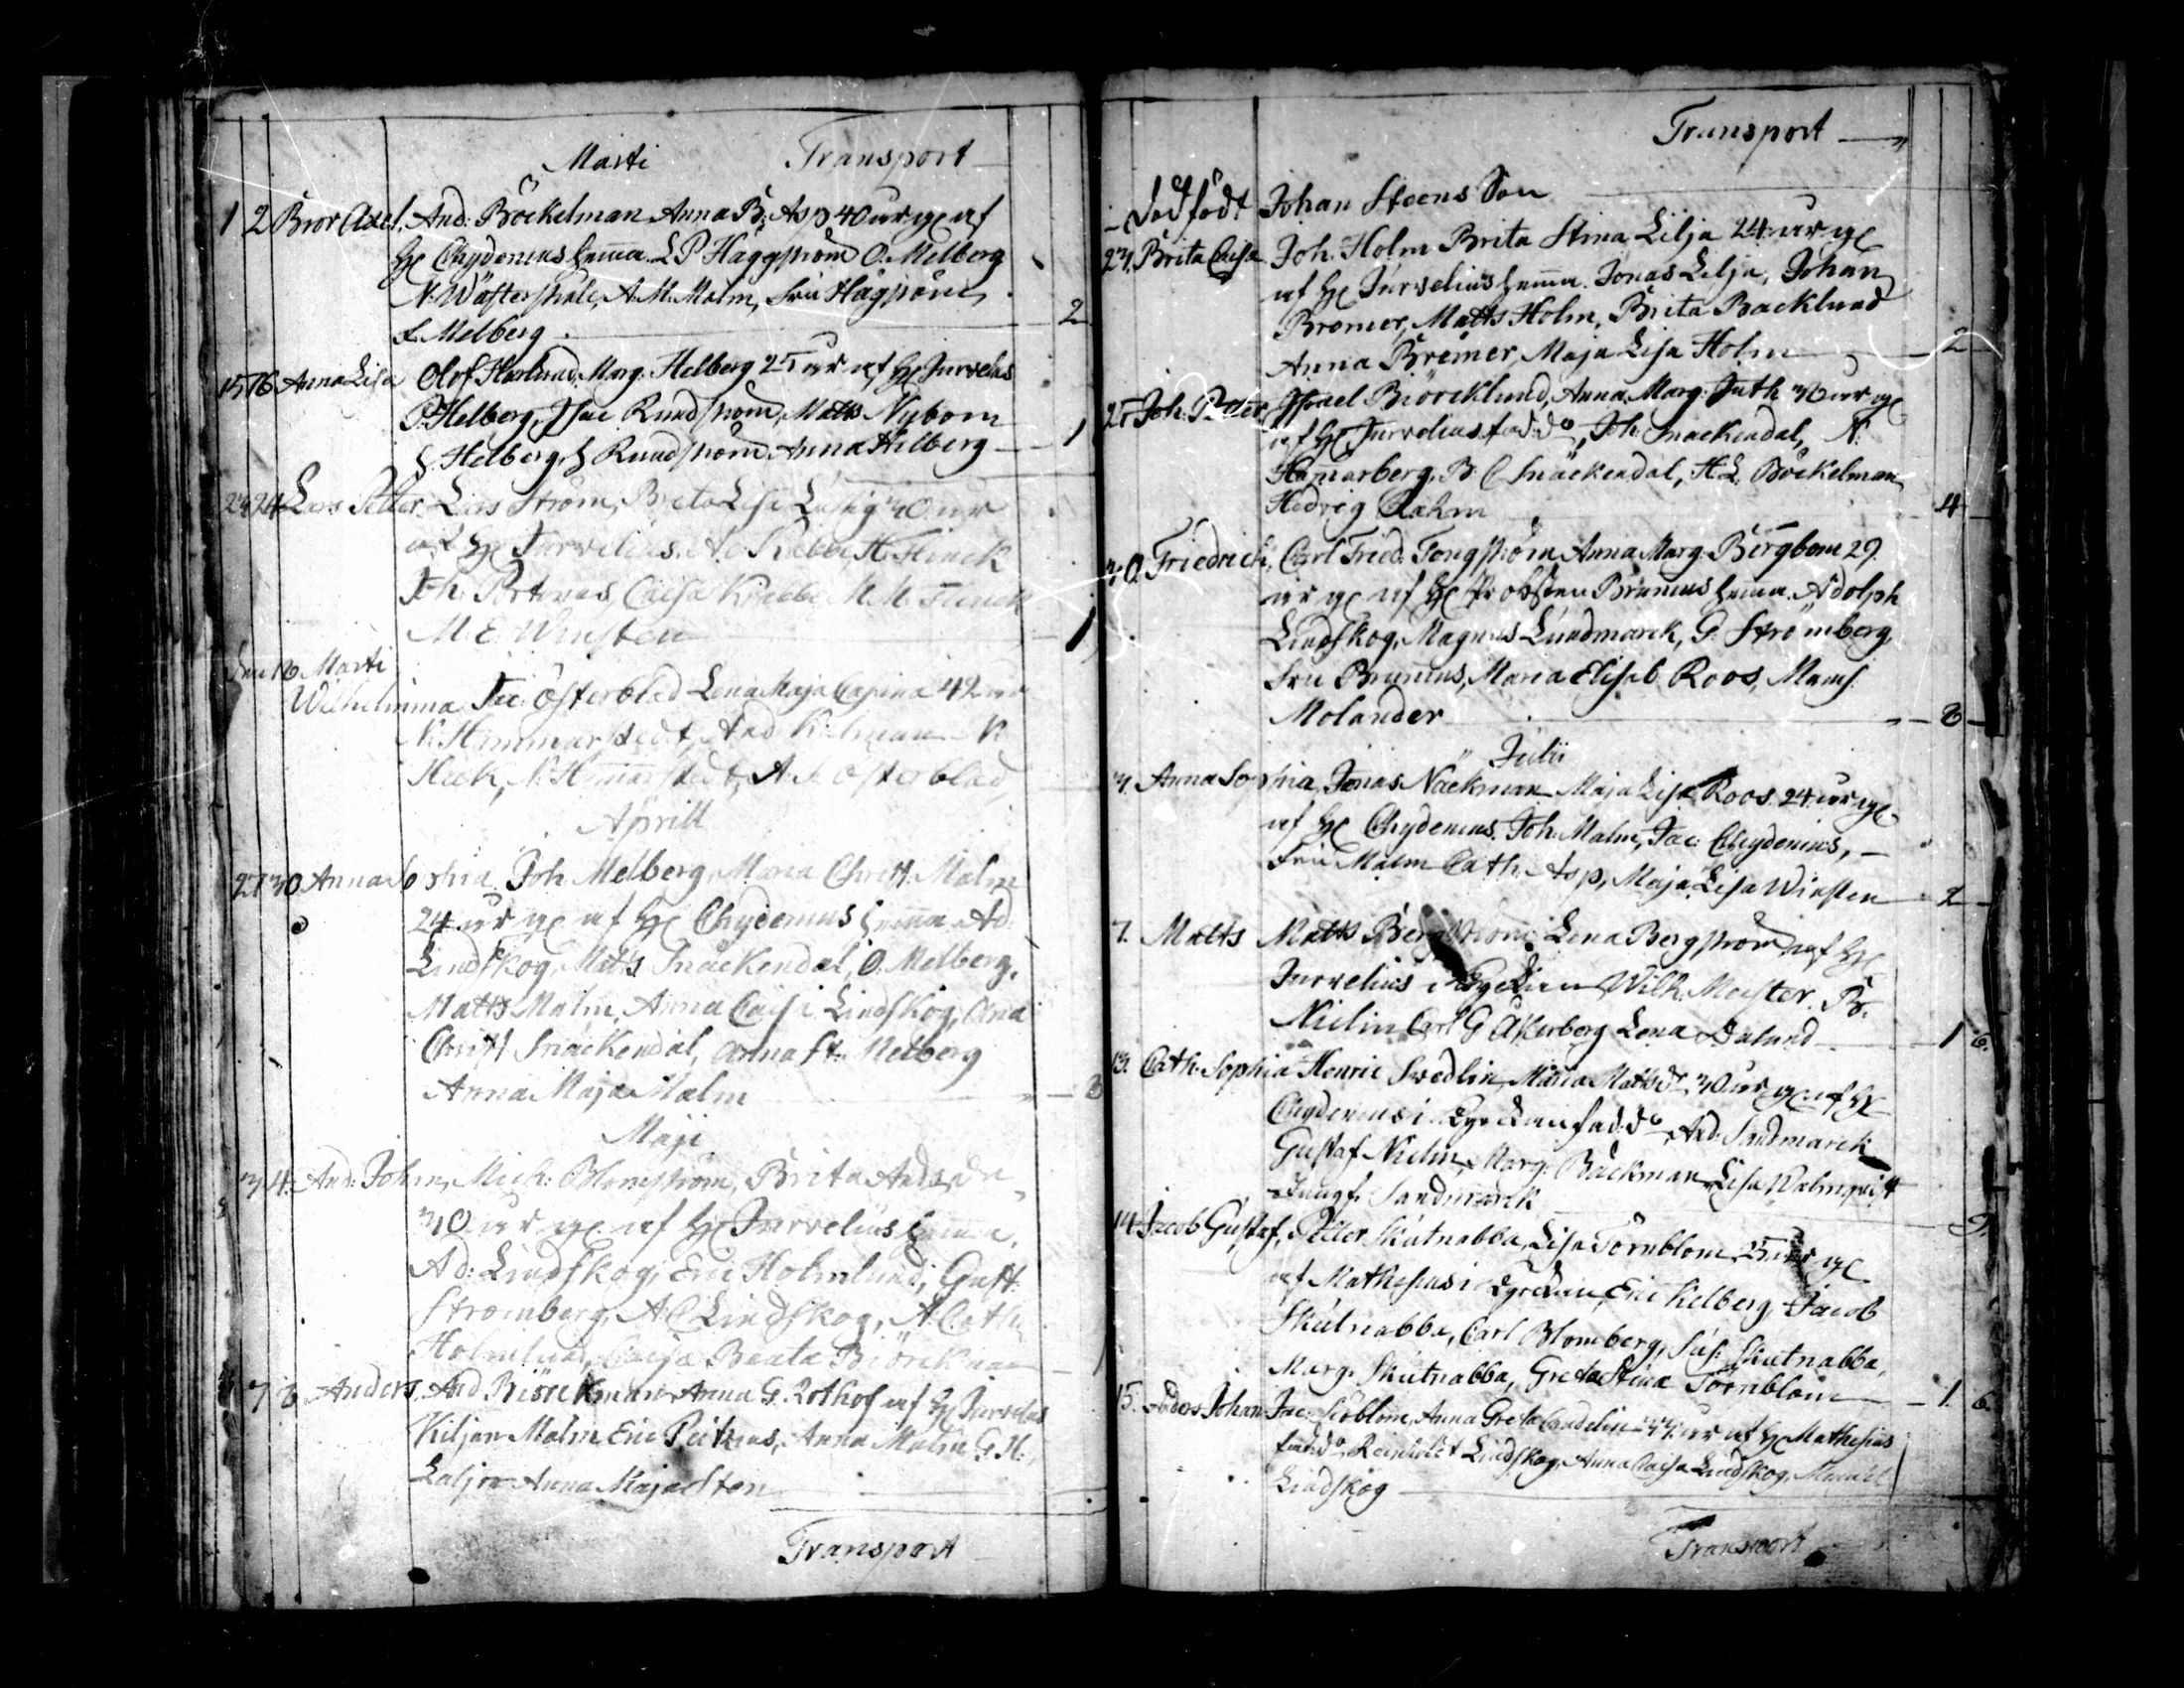 Marti Transport
1 2 Bror Axel. And: Böckelman Anna B: Asp 40 år gl af
H: Chydenius hema. L P Häggström O. Melberg
N. Wästerstråle, A. M. Malm, Fru Hägström
L. Melberg 2
15 16 Anna Lisa Olof Harlund, Marg. Helberg 25 år af H: Jurvelius
P. Helberg, Isac Rundström, Matts Nybom
H. Helberg, H Rundström Anna Helberg 1
23 24 Lars Petter Lars Ström, Brita Lisa 30 år
af H: Jurvelius. A. Krabbe H. Finck
Joh. Portenas, Caisa Krabbe M. M. Funck
M. E. Winsten 1
den 18 Marti
Wilhelmina Jac: Österblad Lena Maja Carina 42 år
N. Hammarstedt, And Kilman N.
Heck, N. Hamarstedt, A. L. Österblad
Aprill
27 30 Anna Sophia Joh. Melberg, Maria Christ. Malm
24 år gl af H: Chydenius hema Ad.
Lindskog, Matts Snäckendal, O. Melberg,
Matts Malm, Anna Caisa Lindskog, Ana
Christ Snäckendal, Anna St. Melberg
Anna Maja Malm 8
Maji
3 4. And: Johan, Mich: Blomström, Brita Ands dr
30 år gl. af H: Jurvelius hema,
Ad: Lindskog, Eric Holmlund, Gust:
Strömberg, A C Lindskog, A Cath
Holmlund, Caisa Beata Biörckman
7 8 Anders, And Biörckman Anna G. Rothof af H: Jurvelius
Kiljan Malm Eric Peitzius, Anna Malm G. H.
Laljer Anna Maja Sten
Transport
Transport
Dödfödt Johan Steens Son
23. Brita Caisa Joh. Holm Brita Stina Lilja 24 år gl
af H: Jurvelius hema. Jonas Lilja, Johan
Bremer, Matts Holm, Brita Backlund
Anna Bremer, Maja Lisa Holm 2
25 Joh. Petter, Israel Biörcklund, Anna Marg. Juth 30 år gl
af H: Jurvelius fadd:, Joh. Snäckendal, N:
Hamarberg, B. C Snäckendal, H. L. Böckelman
Hedvig Rahm 4
30. Friedrich, Carl Fried. Tengström Anna Marg. Bergbom 29.
år gl af H: Probsten Brunnius hema. Adolph
Lindskog, Magnus Lundmarck, G. Strömberg,
Fru Brunnius, Maria Elisab Roos, Mams.
Molander 8
Julii
3. Anna Sophia, Jonas Näckman Maja Lisa Roos 24 år gl
af H: Chydenius. Joh. Malm, Jac: Chydenius,
Fru Malm Cath. Asp, Maja Lisa Winsten 2
7. Matts Matts Bergström, Lena Bergström af H:
Jurvelius i Wilh. Mester. B.
Nielin Carl G Åkerberg Lena Dalund 1 6.
13. Cath. Sophia Henric Swedlin, Maria Matsdr 30 år gl af H:
Chydenius i fadd: And: Sandmarck
Gustaf Nielin, Marg. Bäckman Lisa Palmqvist
Jungf. Sandmarck 9.
14. Jacob Gustaf, Petter Skutnabba, Lisa Törnblom 25 år gl
af Mathesius i Eric Kelberg, Jacob
Skutnabba, Carl Blomberg, Sus: Skutnabba,
Marg. Skutnabba, Greta Stina Törnblom 1. 6.
15. Anders Johan Jac: Siöblom, Anna Greta Candelin 44 år af H: Mathesius
fadd: Reinholdt Lindskog, Anna Caisa Lindskog,
Lindskog
Transport